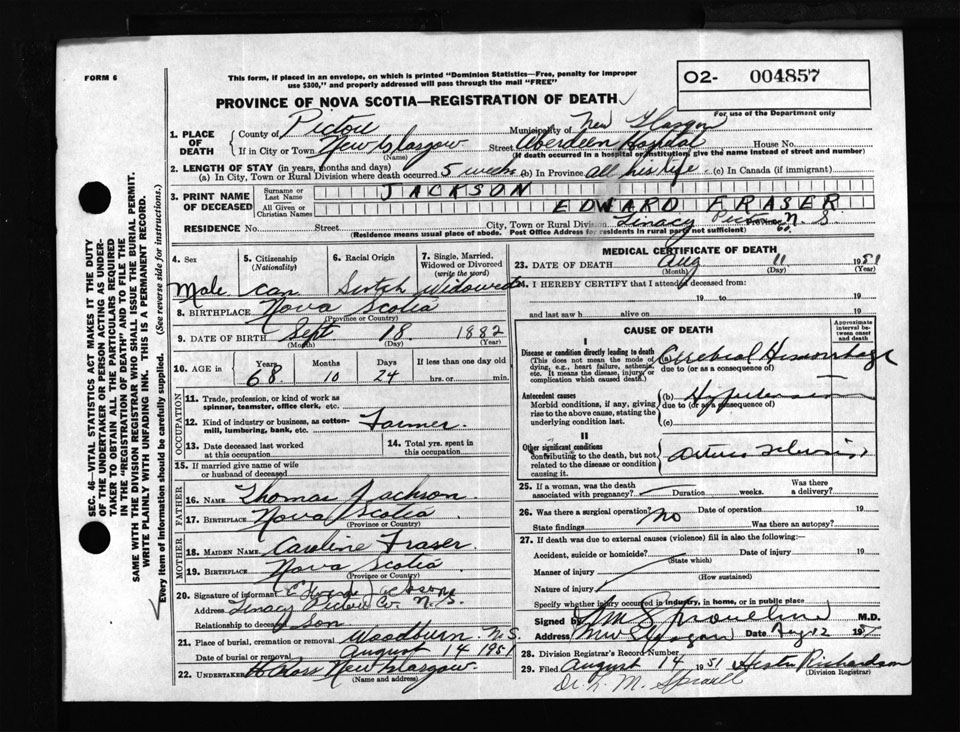 FORM 6
This form, if placed in an envelope, on which is printed "Dominion Statistics—Free, penalty for improper
use $300," and properly addressed will pass through the mail "FREE"
02- 004857
For use of the Department only
PROVINCE OF NOVA SCOTIA—REGISTRATION OF DEATH
1. PLACE OF DEATH County of Pictou Municipality of New Glasgow
If in City or Town New Glasgow (Name) Street Aberdeen House No.
(If death occurred in a hospital or institution, give the name instead of street and number)
2. LENGTH OF STAY (in years, months and days)
(a) In City, Town or Rural Division where death occurred 5 weeks (b) In Province all his life (c) In Canada (if immigrant)
3. PRINT NAME OF DECEASED Surname or Last Name JACKSON
All Given or Christian Names EDWARD FRASER
RESIDENCE No. Street City, Town or Rural Division Linacy Pictou Co. N. S.
(Residence means usual place of abode. Post Office Address for residents in rural parts not sufficient)
4. Sex Male
5. Citizenship (Nationality) Can
6. Racial Origin
7. Single, Married, Widowed or Divorced (write the word) Widowed
8. BIRTHPLACE Nova Scotia
(Province or Country)
9. DATE OF BIRTH Sept 18 1882
(Month) (Day) (Year)
10. AGE in Years 68 Months 10 Days 24 If less than one day old hrs. or min.
OCCUPATION
11. Trade, profession, or kind of work as spinner, teamster, office clerk, etc.
12. Kind of industry or business, as cotton-mill, lumbering, bank, etc. Farmer
13. Date deceased last worked at this occupation
14. Total yrs. spent in this occupation
15. If married give name of wife or husband of deceased
FATHER
16. NAME Thomas Jackson
17. BIRTHPLACE Nova Scotia
(Province or Country)
MOTHER
18. MAIDEN NAME Caroline Fraser
19. BIRTHPLACE Nova Scotia
(Province or Country)
20. Signature of informant Jackson
Address Linacy Pictou Co. N.S.
Relationship to deceased Son
21. Place of burial, cremation or removal Woodburn N.S.
Date of burial or removal August 14 1951
22. UNDERTAKER H Ross New Glasgow
(Name and address)
MEDICAL CERTIFICATE OF DEATH
23. DATE OF DEATH Aug 11 1951
(Month) (Day) (Year)
24. I HEREBY CERTIFY that I attended deceased from:
19 to 19
and last saw h alive on 19
CAUSE OF DEATH
Approximate interval between onset and death
I
Disease or condition directly leading to death (a) Cerebral Hemorrhage
(This does not mean the mode of dying, e.g., heart failure, asthenia, etc. It means the disease, injury or complication which caused death.)
due to (or as a consequence of)
Antecedent causes (b) Hypertension
Morbid conditions, if any, giving rise to the above cause, stating the underlying condition last.
due to (or as a consequence of)
(c)
II
Other significant conditions
contributing to the death, but not related to the disease or condition causing it.
25. If a woman, was the death associated with pregnancy? Duration weeks. Was there a delivery?
26. Was there a surgical operation? No Date of operation 19
State findings Was there an autopsy?
27. If death was due to external causes (violence) fill in also the following:—
Accident, suicide or homicide? Date of injury 19
(State which)
Manner of injury
(How sustained)
Nature of injury
Specify whether injury occurred in industry, in home, or in public place
Signed by M.D.
Address New Glasgow Date Aug 12 1951
28. Division Registrar's Record Number
29. Filed August 14 1951 Hester Richardson
(Division Registrar)
Dr. L. M. Sproull
SEC. 46—VITAL STATISTICS ACT MAKES IT THE DUTY
OF THE UNDERTAKER OR PERSON ACTING AS UNDER-
TAKER TO OBTAIN ALL THE PARTICULARS REQUIRED
IN THE "REGISTRATION OF DEATH" AND TO FILE THE
SAME WITH THE DIVISION REGISTRAR WHO SHALL ISSUE THE BURIAL PERMIT.
WRITE PLAINLY WITH UNFADING INK. THIS IS A PERMANENT RECORD.
Every item of information should be carefully supplied. (See reverse side for instructions.)